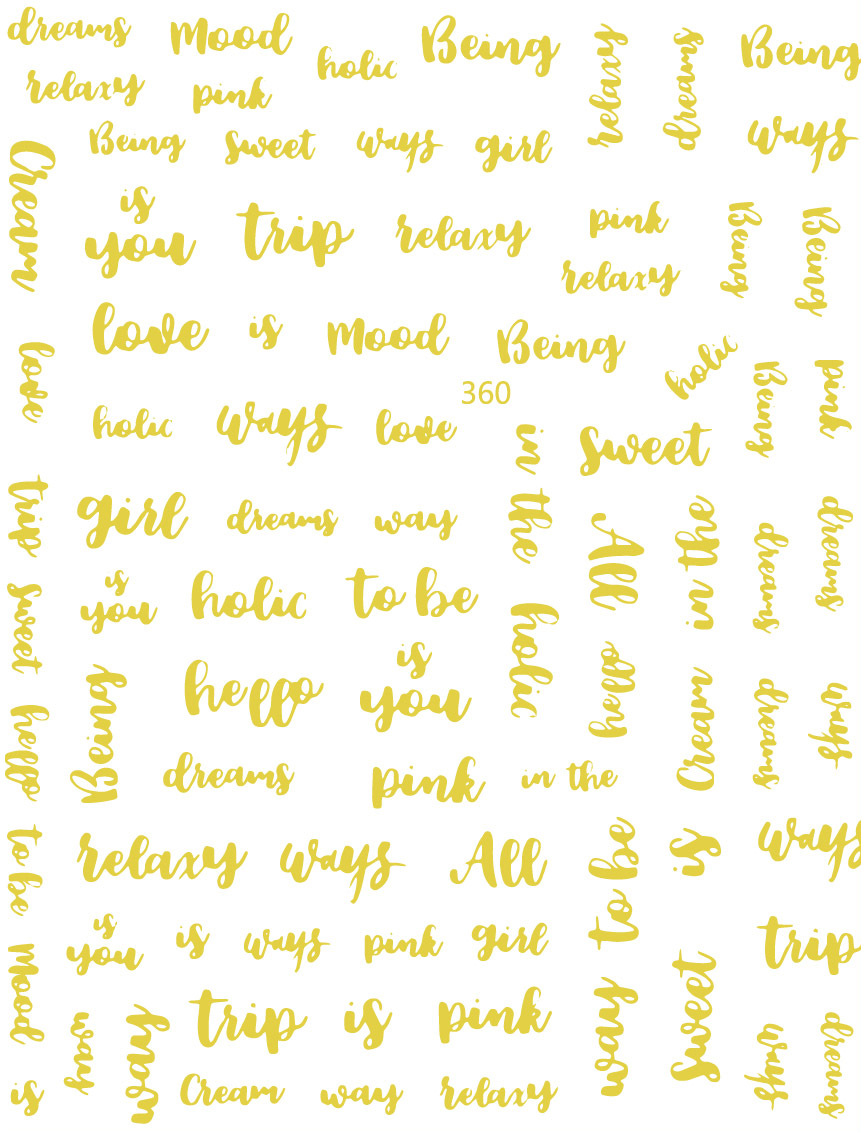 dreams Mood holic Being relaxy dreams Being
relaxy pink
Being sweet ways girl ways
Cream is you trip relaxy pink Being Being
relaxy
love love is Mood Being holic Being pink
360
holic ways love in the sweet
trip girl dreams way All in the dreams dreams
sweet is you holic to be holic hello
hello Being hello is you Cream dreams ways
dreams pink in the
to be relaxy ways All to be is ways
Mood is you is ways pink girl way sweet trip
way way trip is pink ways dreams
is Cream way relaxy